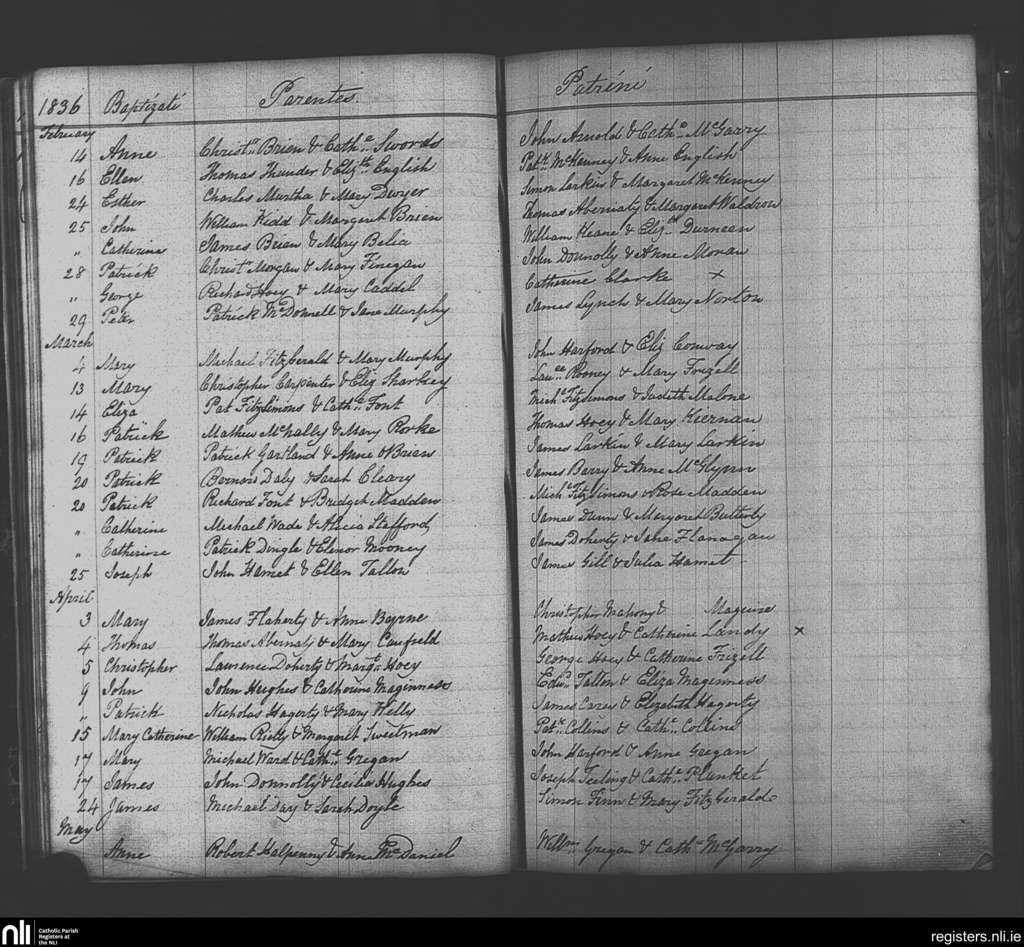 1836 Baptizati Parentes. Patrini
February
14 Anne Christn. Brien & Cathe. Swords John Arnold & Cathe. McGarry
16 Ellen Thomas Thunder & Elizth. English Patk. McKenney & Anne English
24 Esther Charles Murtha & Mary Dwyer Simon Larkin & Margaret McKenney
25 John William Kidd & Margaret Brien Thomas Abernaty & Margaret Waldron
" Catherine James Brien & Mary Belia William Keane & Eliz. Durnean
28 Patrick Christr. Morgan & Mary Finegan John Donnolly & Anne Monan
" George Richard Hoey & Mary Caddel Catherine Clarke ×
29 Peter Patrick McDonnell & Jane Murphy James Lynch & Mary Norton
March
4 Mary Michael Fitzgerald & Mary Murphy John Harford & Eliz Conway
13 Mary Christopher Carpenter & Eliz Sharkey Lauce. Rooney & Mary Frizell
14 Eliza Pat Fitzsimons & Cathe. Font Michl. Fitzsimons & Judith Malone
16 Patrick Mathew McNally & Mary Rorke Thomas Hoey & Mary Kiernan
19 Patrick Patrick Gartland & Anne O'Brien James Larkin & Mary Larkin
20 Patrick Bernard Daly & Sarah Cleary James Barry & Anne McGlynn
20 Patrick Richard Font & Bridget Madden Michl. Fitzsimons & Rose Madden
" Catherine Michael Wade & Alicia Stafford James Dunn & Margaret Butterly
" Catherine Patrick Dingle & Elenor Mooney James Doherty & Jane Flanagan
25 Joseph John Hamet & Ellen Tallon James Gill & Julia Hamet
April
3 Mary James Flaherty & Anne Beyrne Christopher Mahony & Maguire
4 Thomas Thomas Abernaty & Mary Caufield Mathew Hoey & Catherine Landy ×
5 Christopher Laurence Doherty & Margt. Hoey George Hoey & Catherine Frizell
9 John John Hughes & Catherine Maginness Edwd. Tallon & Eliza Maginness
" Patrick Nicholas Hagerty & Mary Kelly James Carey & Elizabeth Hagerty
15 Mary Catherine William Rielly & Margaret Sweetman Pat. Collins & Cathe. Collins
17 Mary Michael Ward & Cathe. Gregan John Harford & Anne Gregan
17 James John Donnolly & Cecilia Hughes Joseph Teeling & Cathe. Plunket
24 James Michael Day & Sarah Doyle Simon Finn & Mary Fitzgerald
May
Anne Robert Halpenny & Anne McDaniel Willm. Gregan & Cathe. McGarry
nli Catholic Parish
Registers at
the NLI
registers.nli.ie